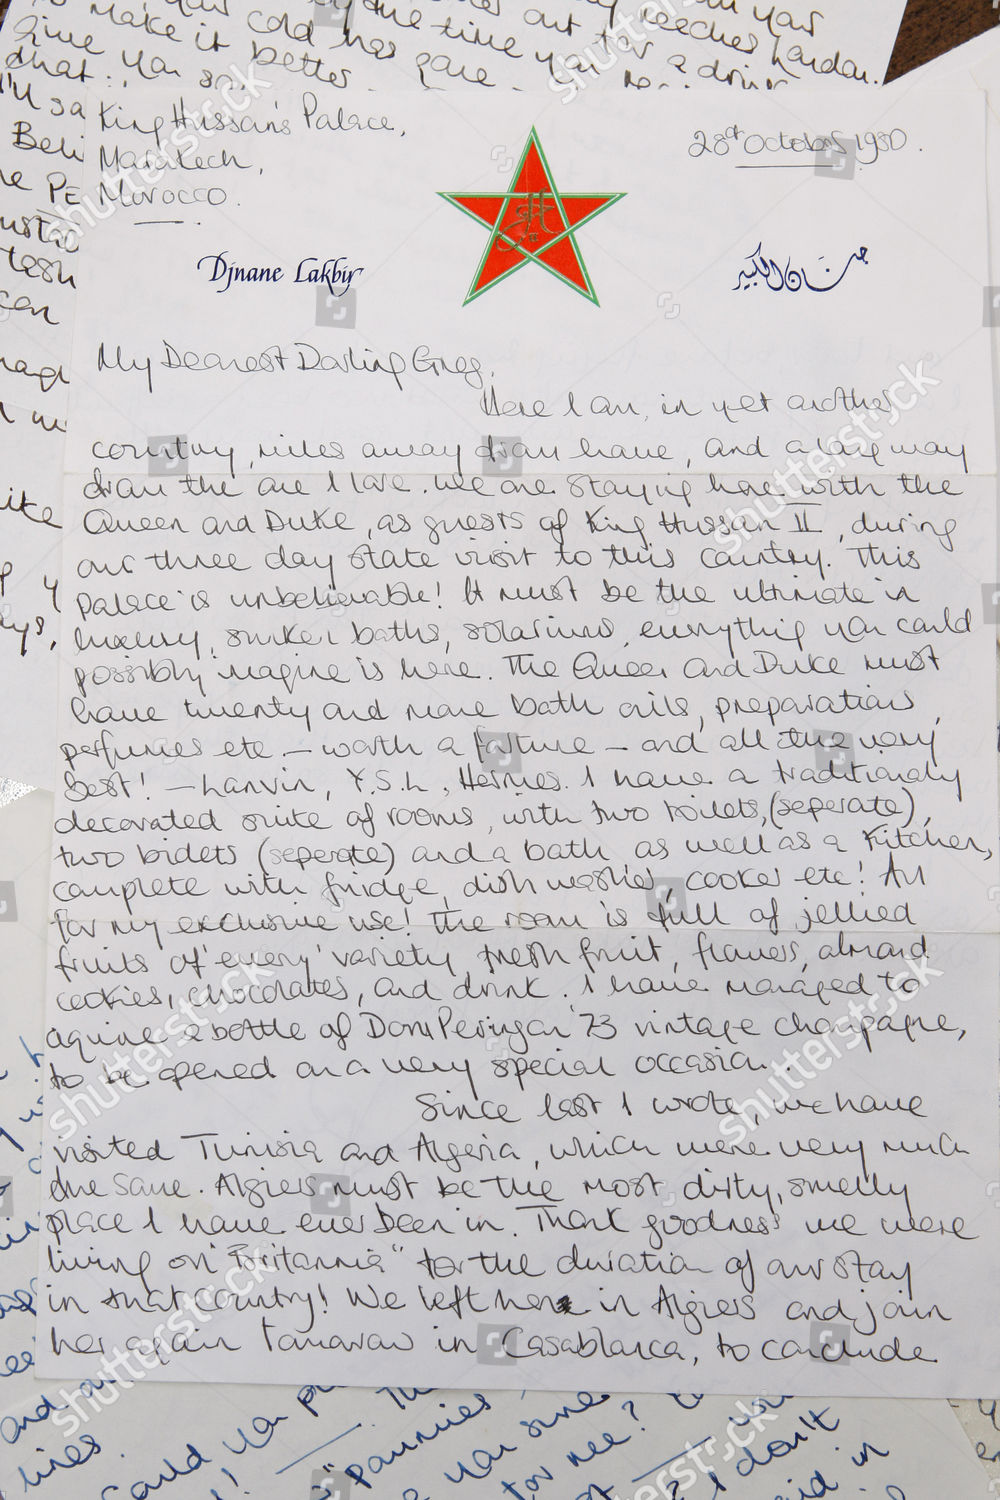 King Hussan's Palace,
Marakech,
Morocco.
28th October 1980.
Djnane Lakbir
جنان الكبير
My Dearest Darling Greg,
Here I am, in yet another
country, miles away from home, and a long way
from the one I love. We are staying here with the
Queen and Duke, as guests of King Hussan II, during
our three day state visit to this country. This
Palace is unbelievable! It must be the ultimate in
luxury, sunken baths, solariums, everything you could
possibly imagine is here. The Queen and Duke must
have twenty and more bath oils, preparations,
perfumes etc - worth a fortune - and all the very
best! - Lanvin, Y.S.L, Hermes. I have a traditionaly
decorated suite of rooms, with two toilets, (seperate),
two bidets (seperate) and a bath, as well as a kitchen,
complete with fridge, dish washer, cooker etc! All
for my exclusive use! The room is full of jellied
fruits of 'every' variety, fresh fruit, flowers, almond
cookies, chocolates, and drink. I have managed to
aquire a bottle of Dom Perignon '73 vintage champagne,
to be opened on a very special occasion.
Since last I wrote, we have
visited Tunisia and Algeria, which were very much
the same. Algiers must be the most dirty, smelly
place I have ever been in. Thank goodness we were
living on "Britannia" for the duration of our stay
in that country! We left her in Algiers and join
her again tomorrow in Casablanca, to conclude
shutterstock